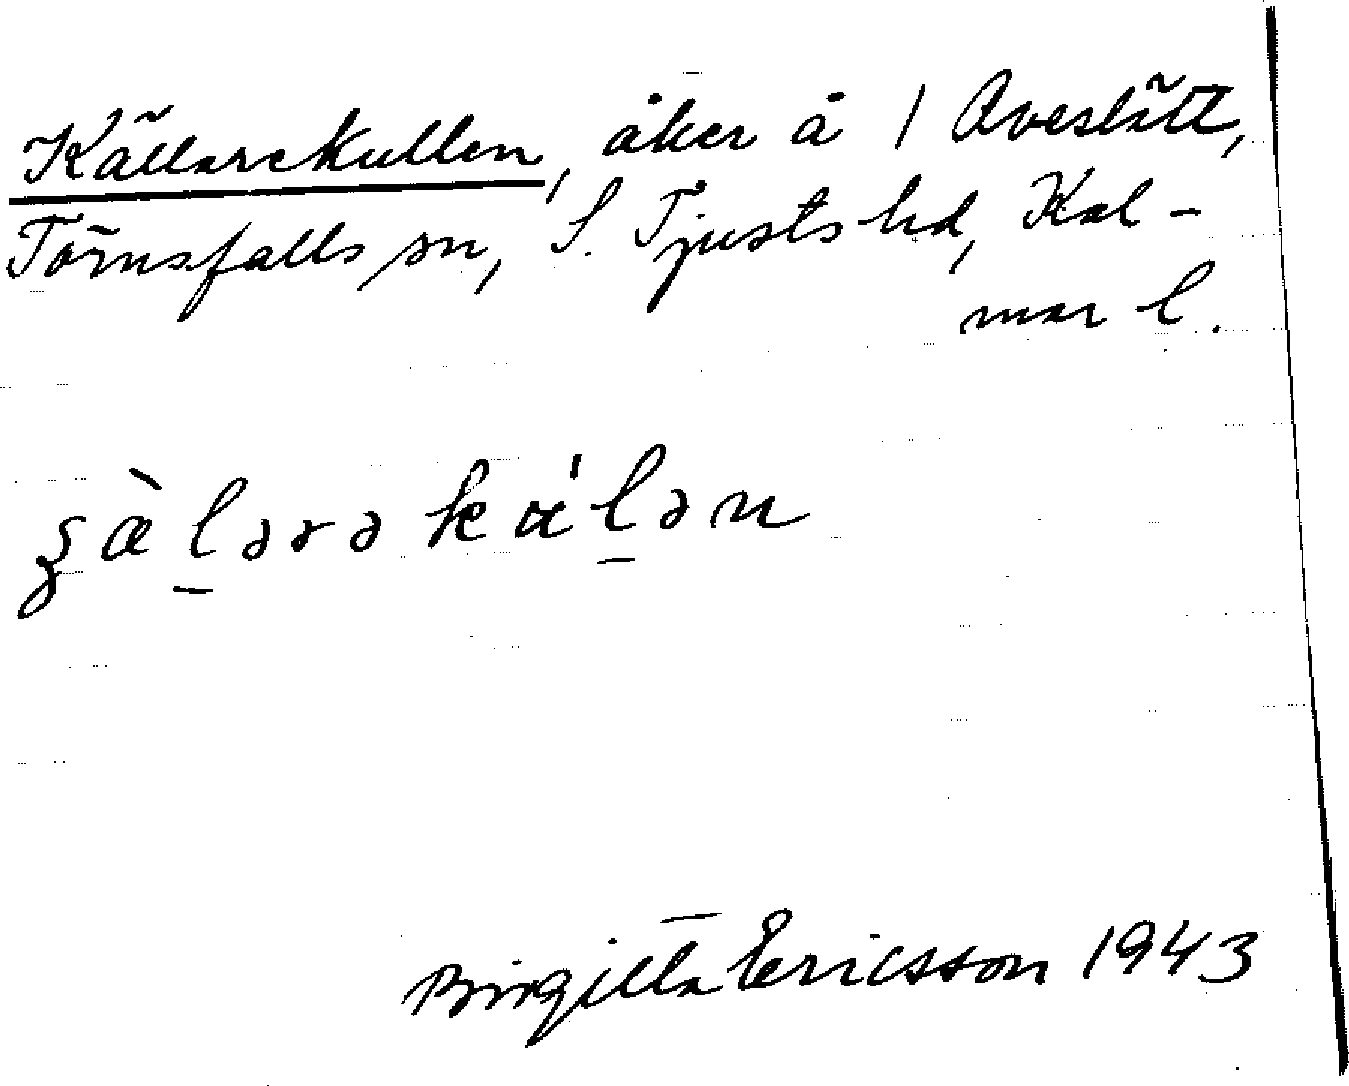 Källarekullen, åker å 1 Överslätt,
Törnsfalls sn, S. Tjusts hd, Kal-
mar l.
ʂæ̀l̲ərəkα'l̲ən
Birgitta Ericsson 1943